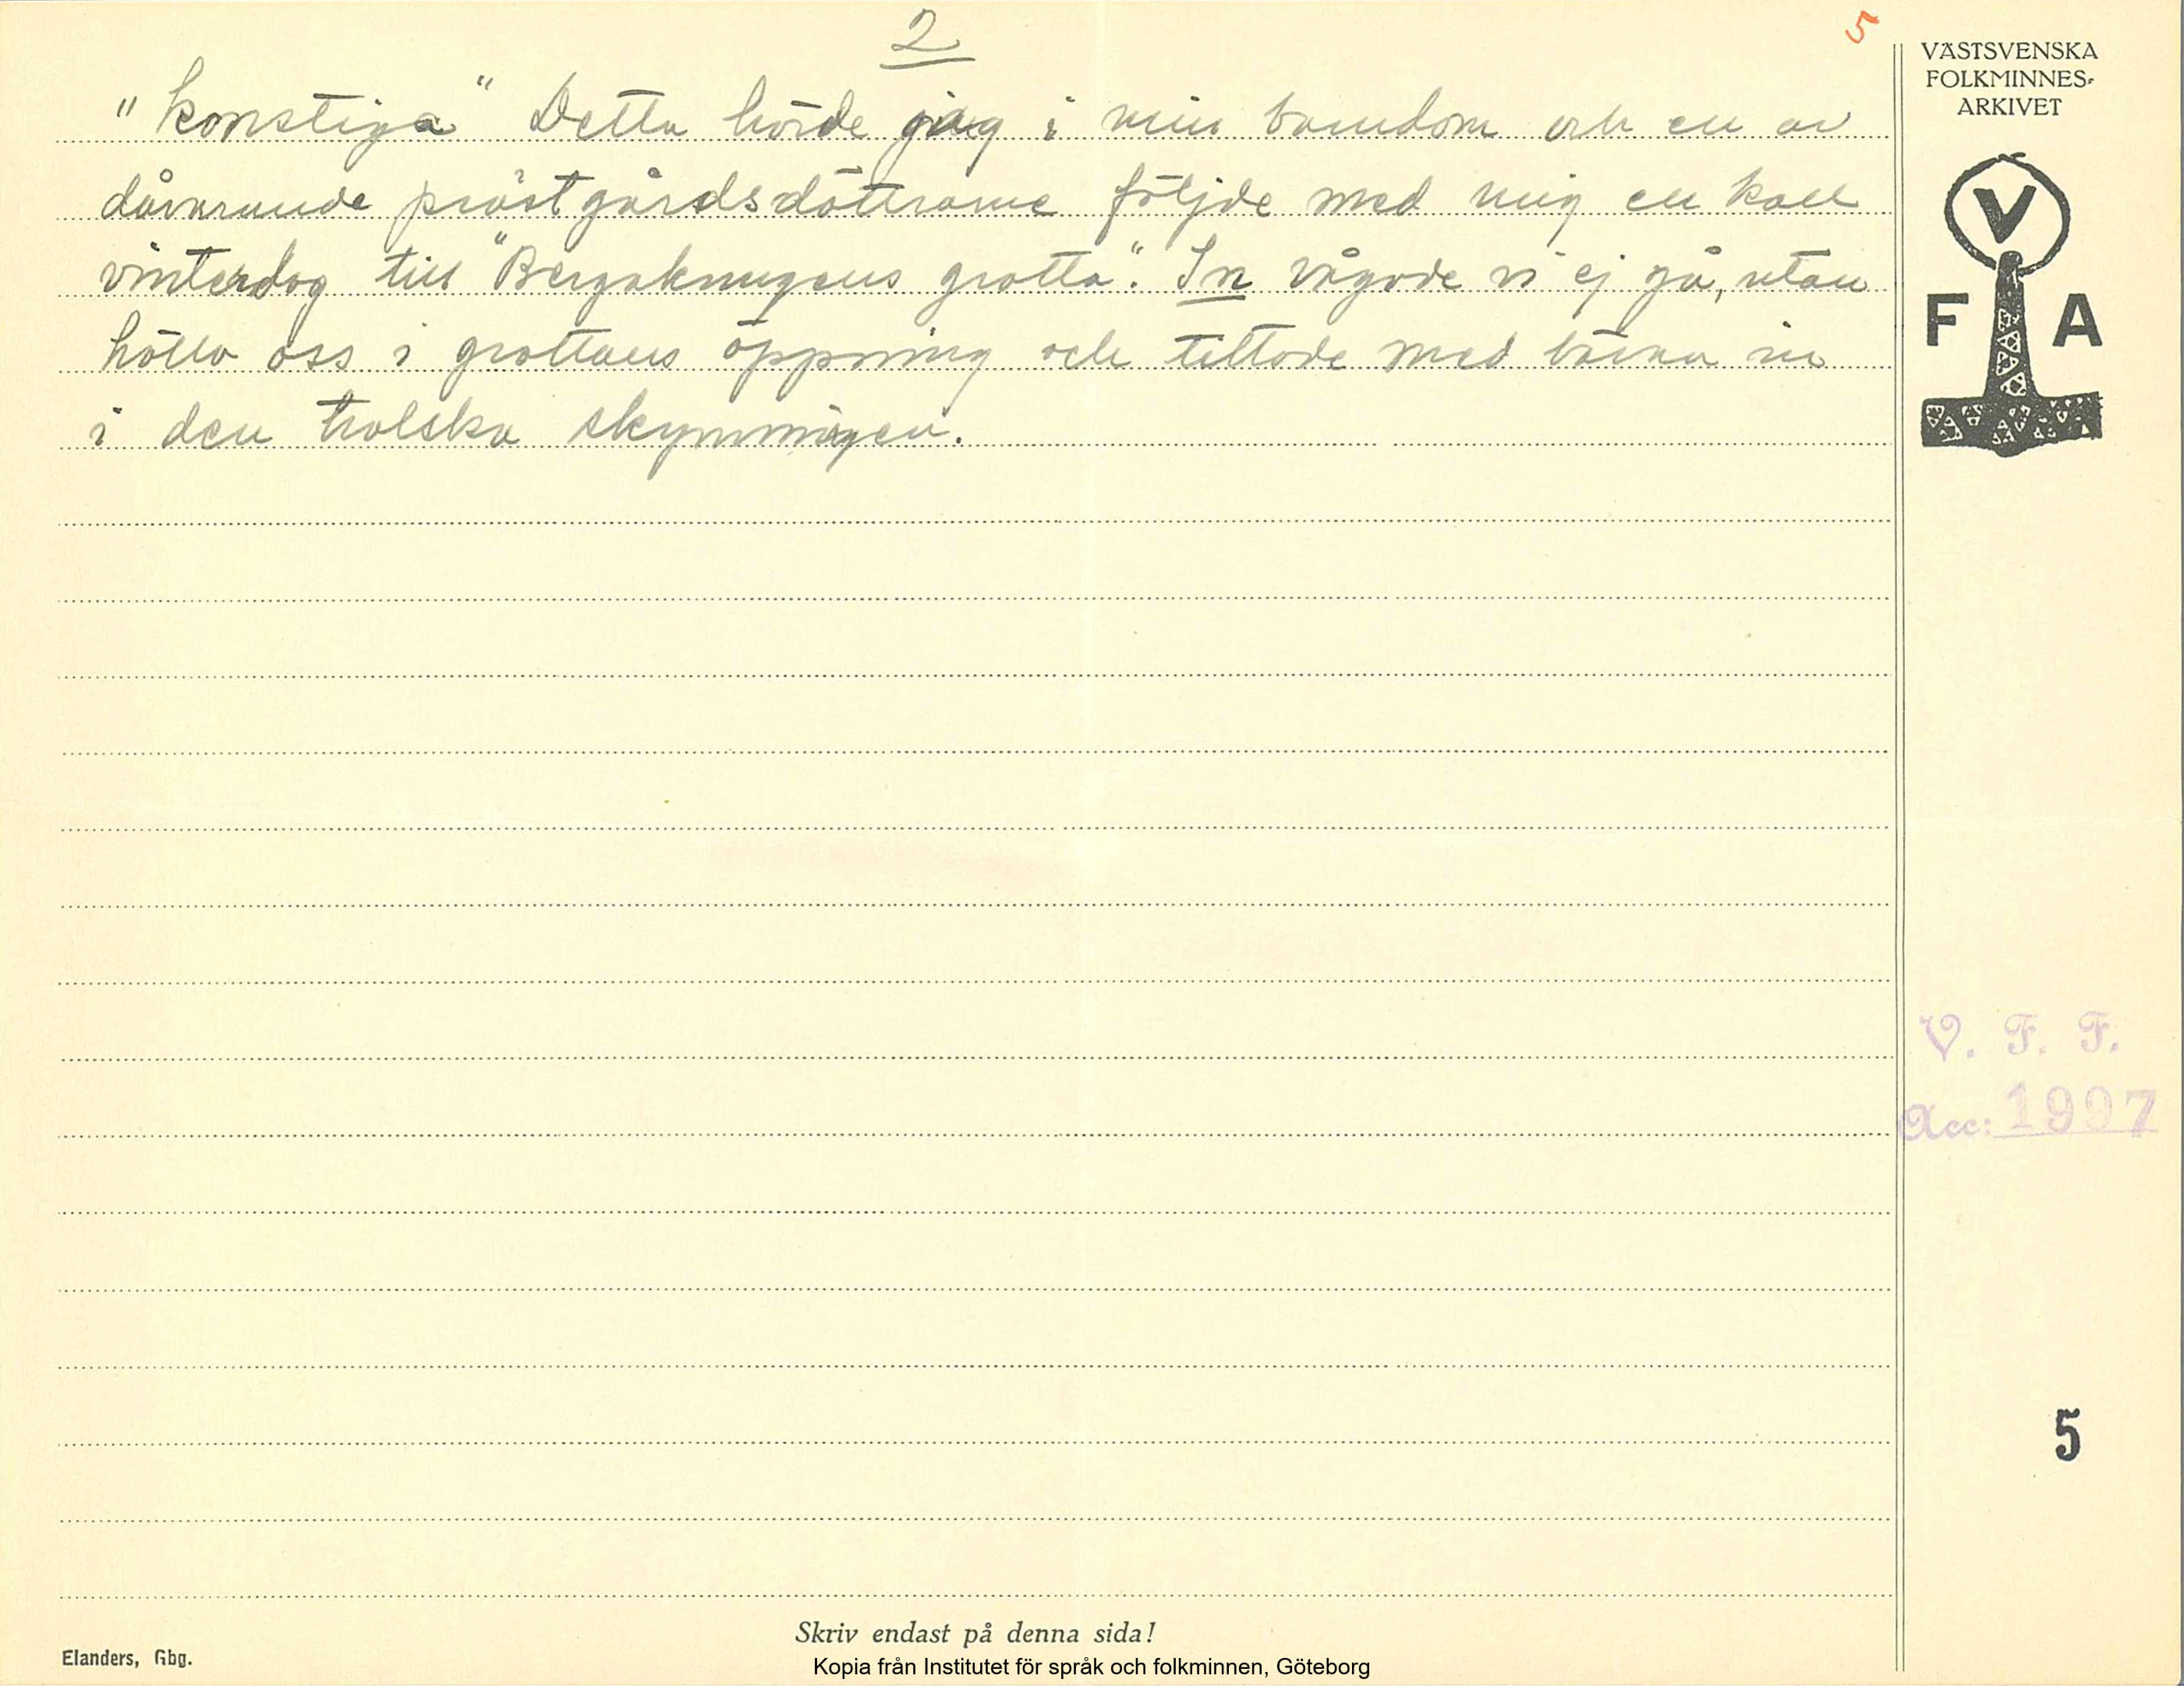 2
5
"konstiga" Detta hörde jag i min barndom och en av
dåvarande prästgårdsdöttrarne följde med mig en kall
vinterdag till "Bergakungens grotta". In vågade vi ej gå, utan
höllo oss i grottans öppning och tittade med bävan in
i den trolska skymningen.
VÄSTSVENSKA
FOLKMINNES-
ARKIVET
V
F A
V. F. F.
Acc: 1997
5
Skriv endast på denna sida!
Elanders, Gbg.
Kopia från Institutet för språk och folkminnen, Göteborg